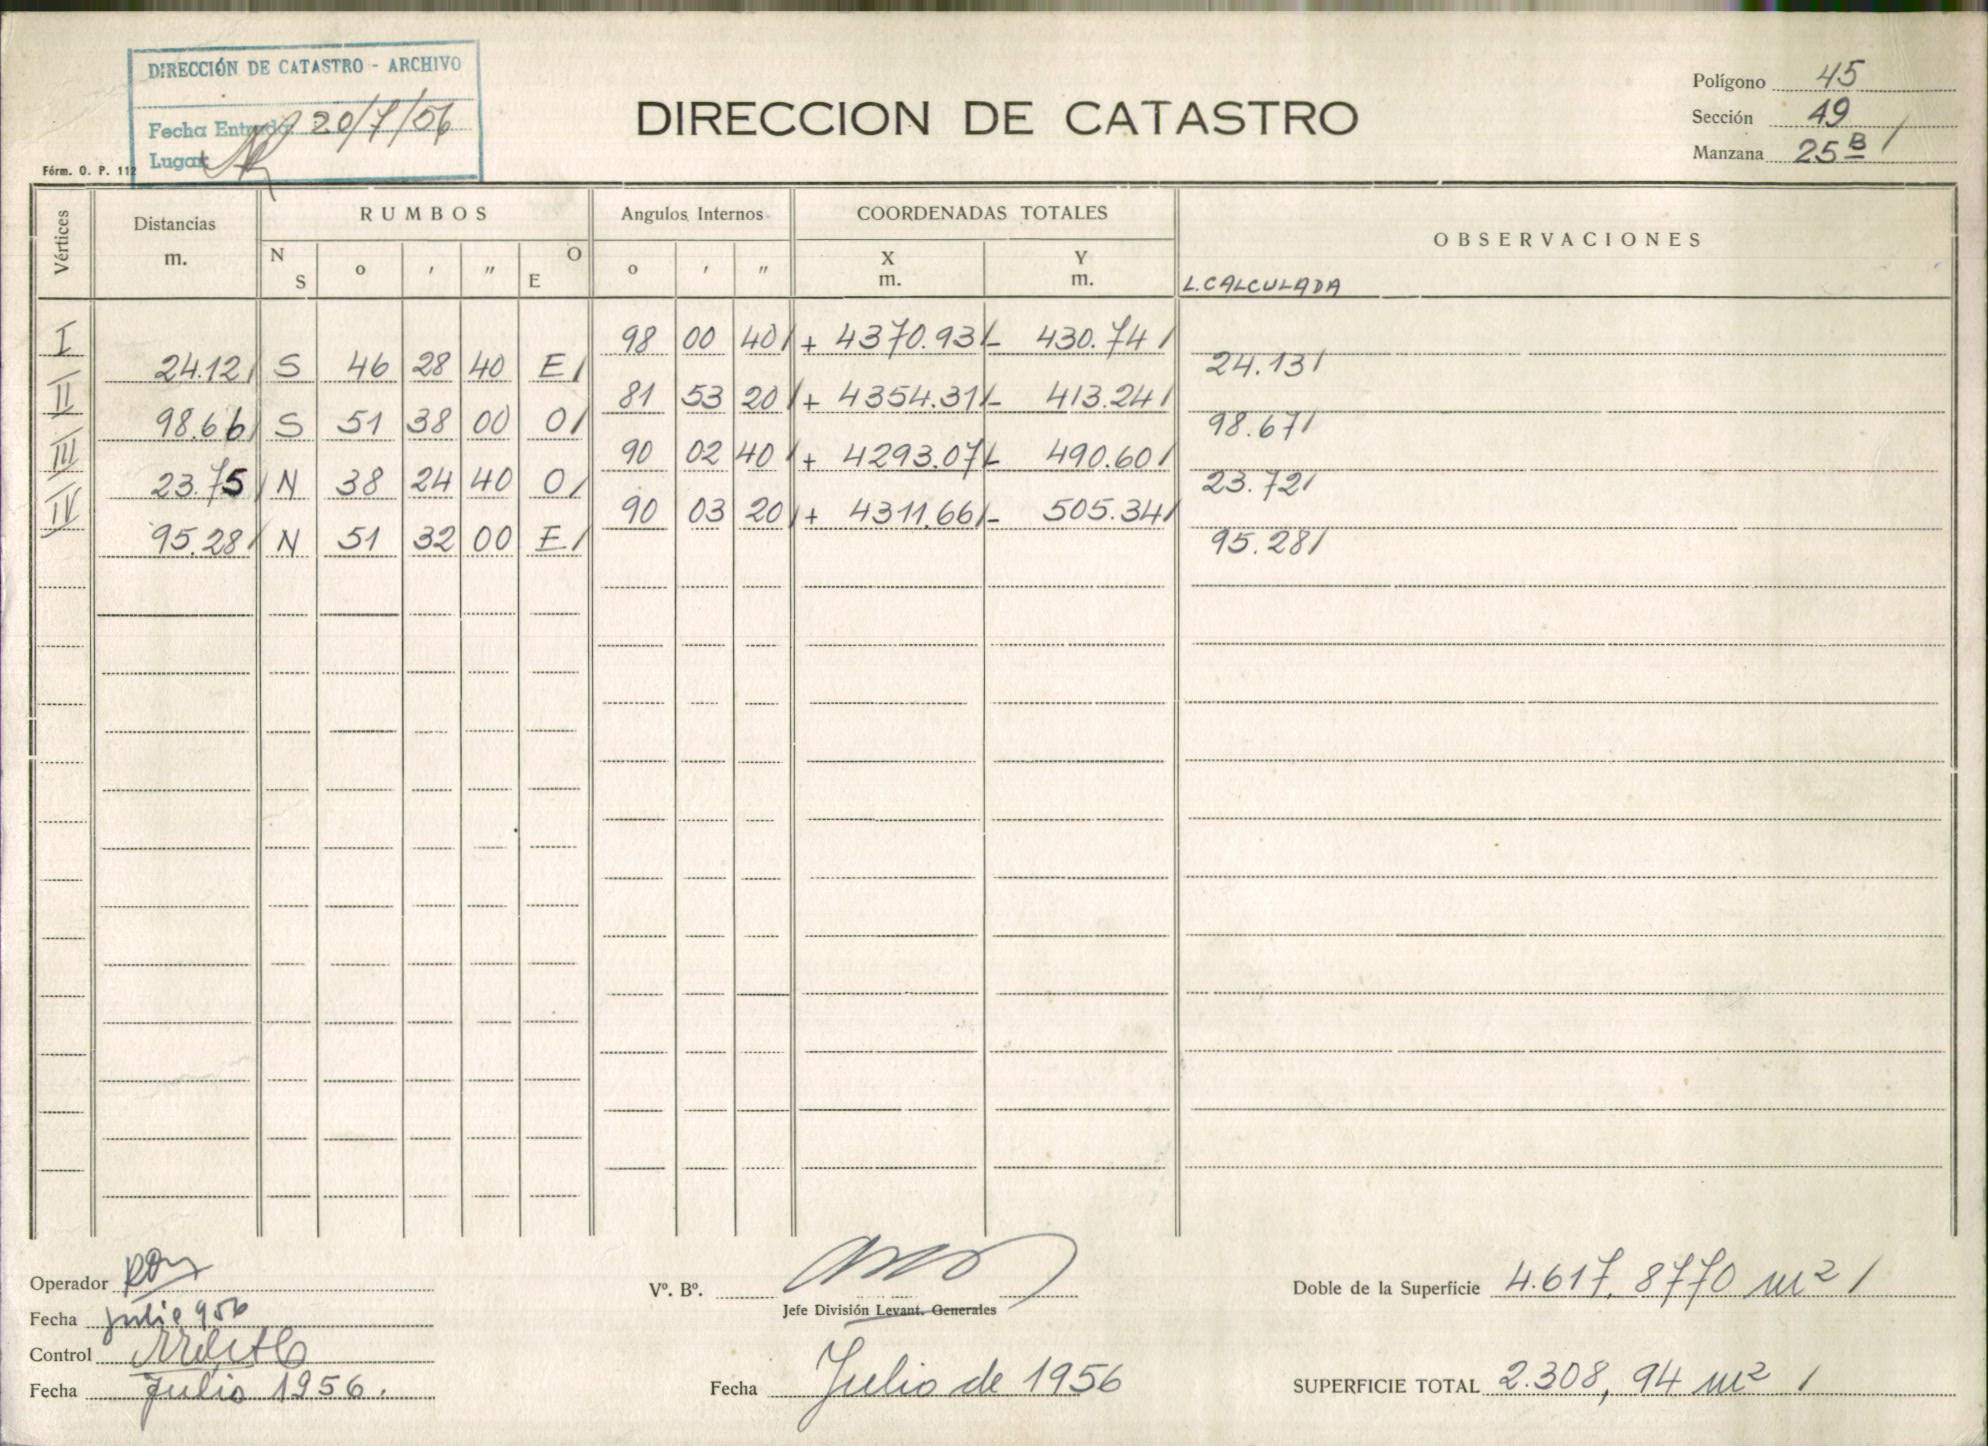 DIRECCIÓN DE CATASTRO - ARCHIVO
Fecha Entrada 20/7/56
Lugar
Fórm. O. P. 112
DIRECCION DE CATASTRO
Polígono 45
Sección 49
Manzana 25 B /
Vértices Distancias m. RUMBOS Angulos Internos COORDENADAS TOTALES OBSERVACIONES
N S o ' " E O o ' " X m. Y m. L. CALCULADA
I 98 00 40 / + 4370.93 / - 430.74 /
24.12 / S 46 28 40 E / 24.13 /
II 81 53 20 / + 4354.31 / - 413.24 /
98.66 / S 51 38 00 O / 98.67 /
III 90 02 40 / + 4293.07 / - 490.60 /
23.75 / N 38 24 40 O / 23.72 /
IV 90 03 20 / + 4311.66 / - 505.34 /
95.28 / N 51 32 00 E / 95.28 /
Operador
Fecha julio 956
Control
Fecha Julio 1956.
Vº. Bº.
Jefe División Levant. Generales
Fecha Julio de 1956
Doble de la Superficie 4.617,8770 m² /
SUPERFICIE TOTAL 2.308,94 m² /